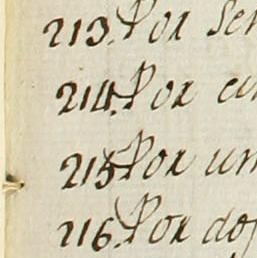 213. Por Ser
214. Por
215 Por un
216. Por dos